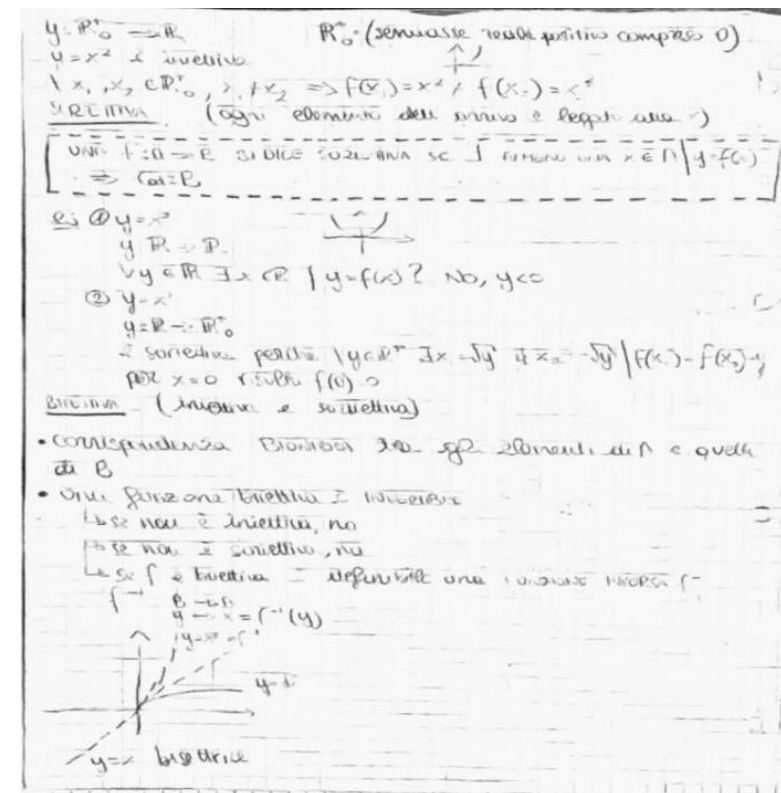 y: ℝ⁺₀ → ℝ ℝ⁺₀ (semiasse reale positivo compreso 0)
y = x² è iniettiva
x₁, x₂ ∈ ℝ⁺₀, x₁ ≠ x₂ => f(x₁) = x² ≠ f(x₂) = x²
(ogni elemento dell' arrivo è legato alla x)
UNA f: A → B SI DICE SURIETTIVA SE ∃ ALMENO UNA x ∈ A | y = f(x)
=>
Es ① y = x²
y ℝ → ℝ
∀ y ∈ ℝ ∃ x ∈ ℝ | y = f(x)? No, y<0
② y = x²
y = ℝ → ℝ⁺₀
è suriettiva perché ∀ y ∈ ℝ⁺ ∃ x = √y x₂ = -√y | f(x₁) = f(x₂) = y
per x = 0 risulta f(0) = 0
BIIETTIVA (iniettiva e suriettiva)
• corrispondenza BIUNIVOCA tra gli elementi di A e quelli
di B
• una funzione biettiva è INVERTIBILE
↳ se non è iniettiva, no
↳ se non è suriettiva, no
↳ se f è biettiva è definibile una FUNZIONE INVERSA f⁻¹
f⁻¹ B → A
y → x = f⁻¹(y)
y = x²
y = x bisettrice